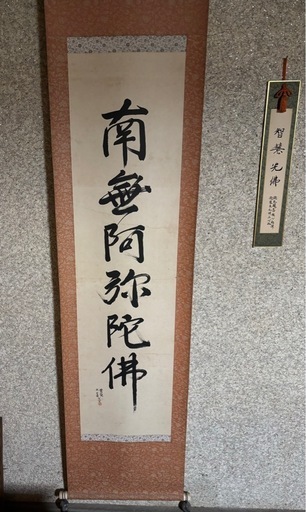 南無阿弥陀佛
智慧光佛